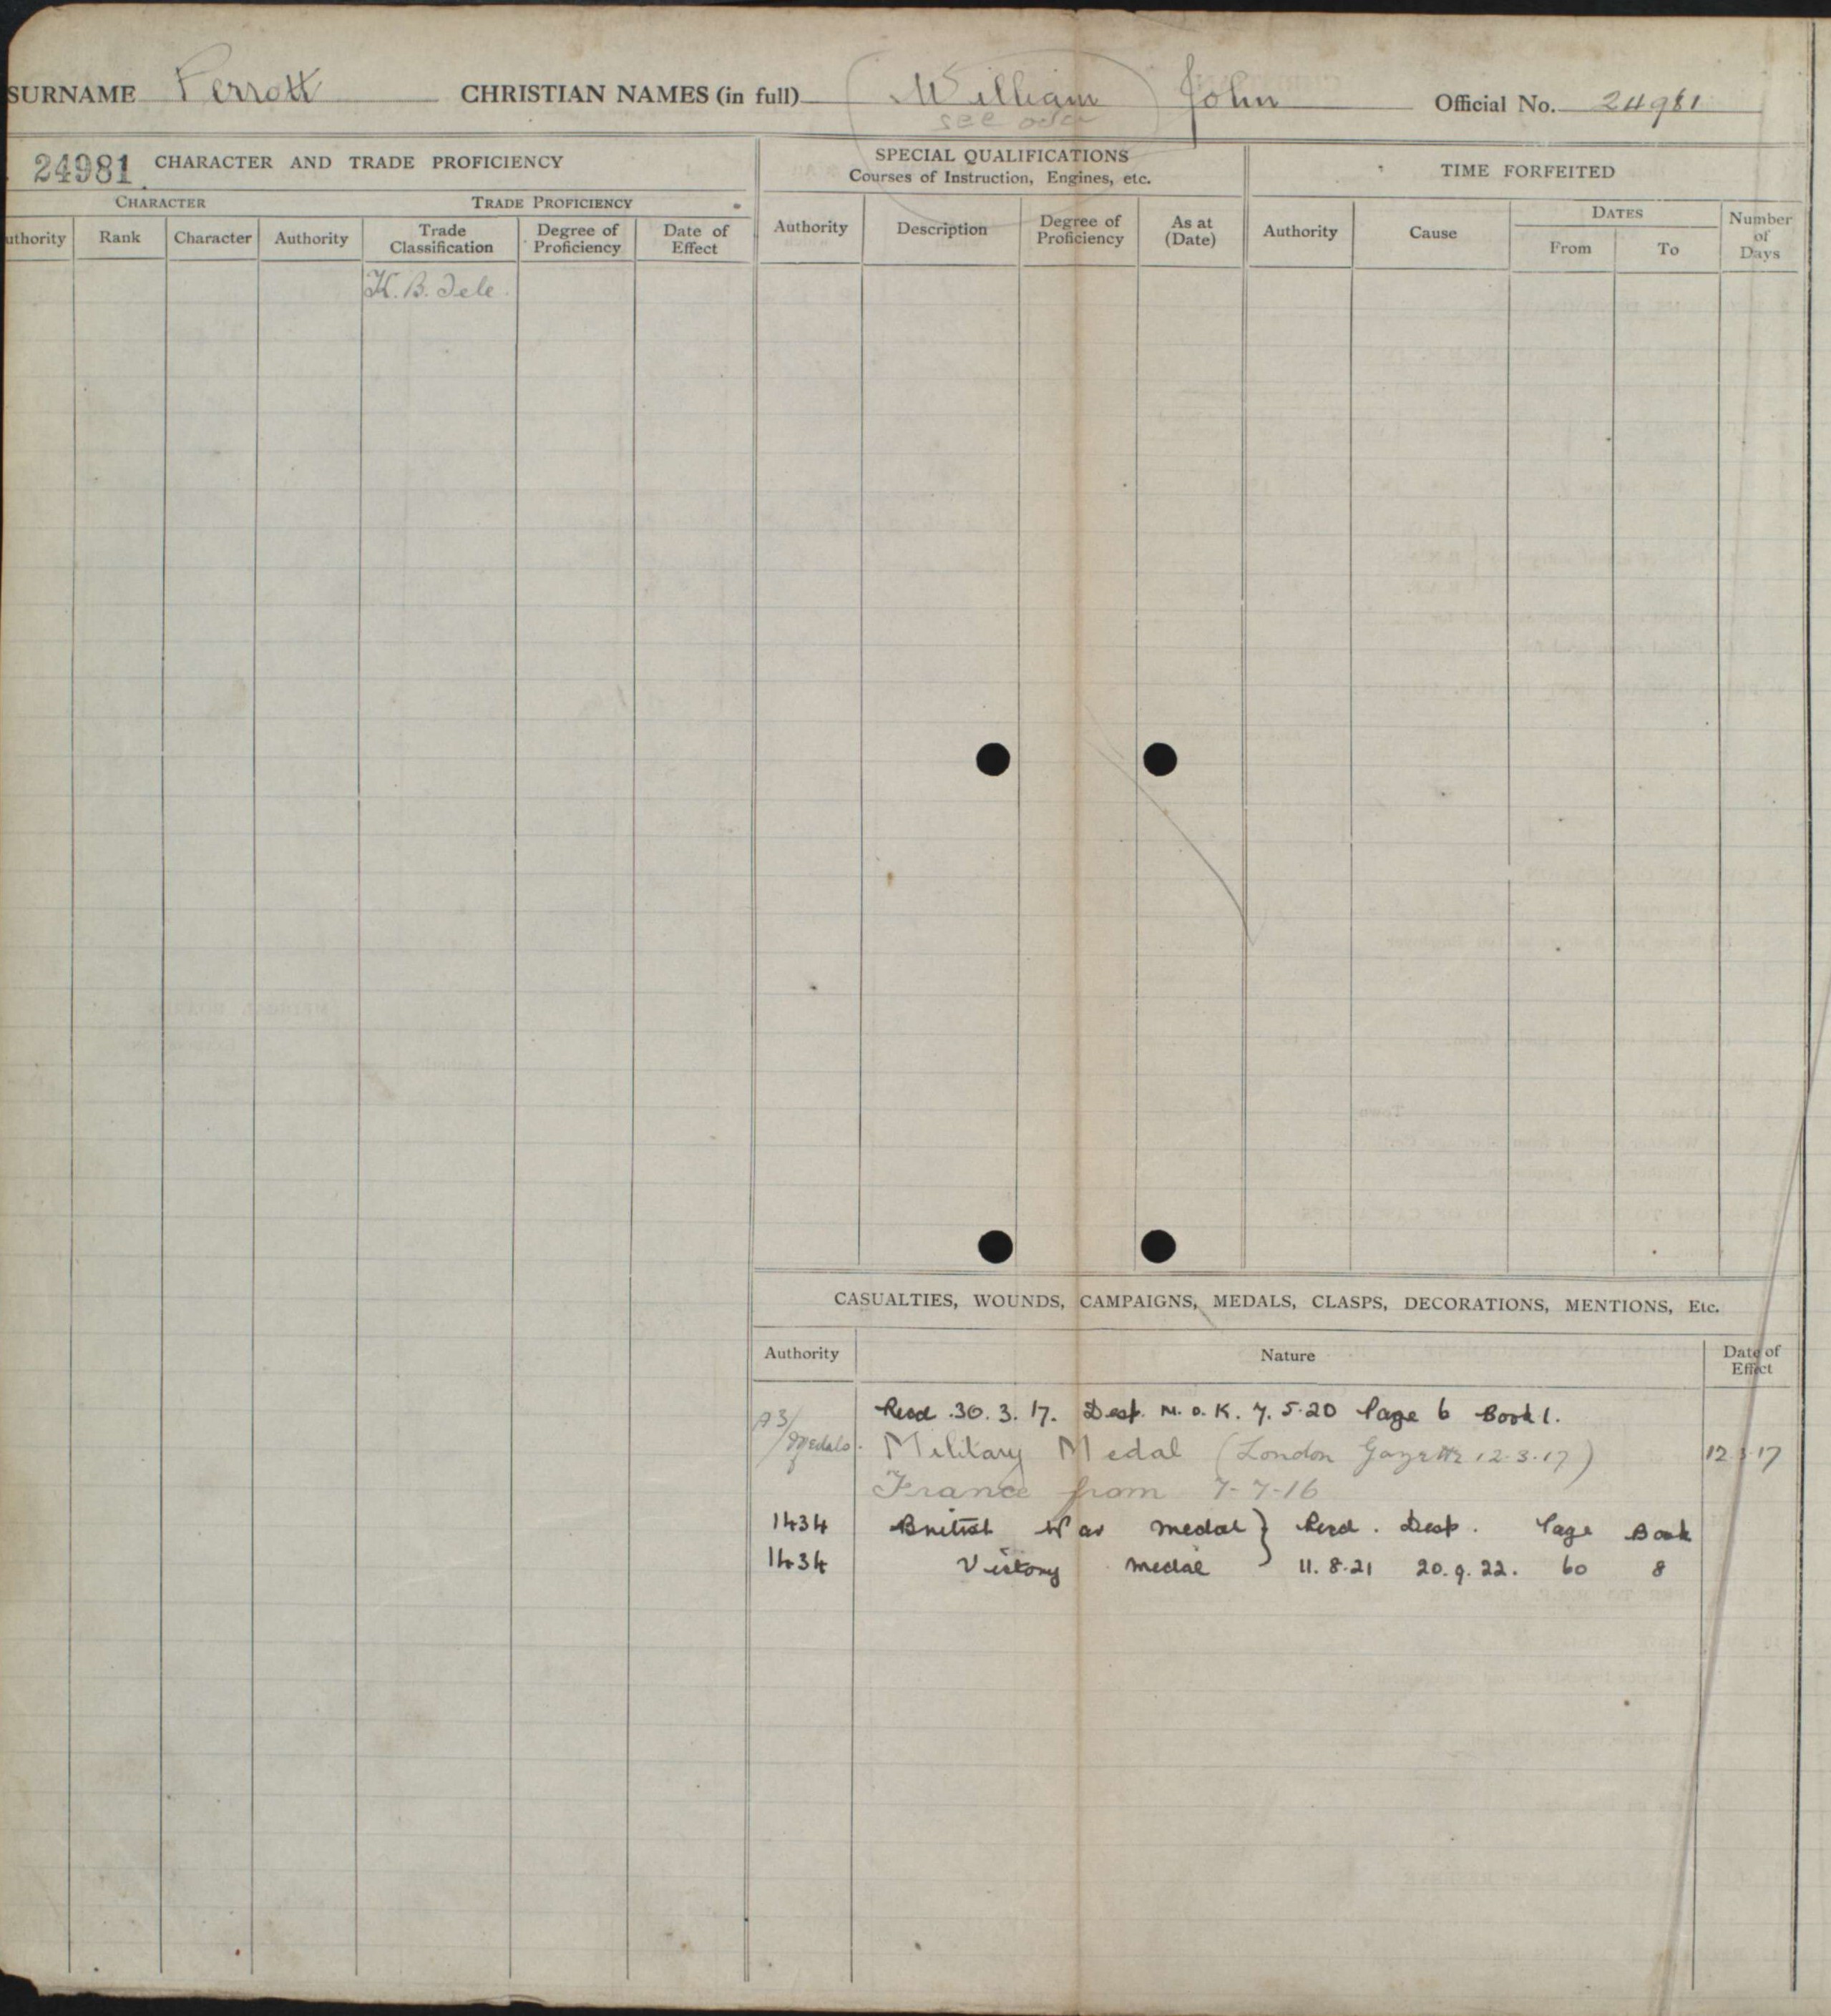 SURNAME Perrott CHRISTIAN NAMES (in full) (William) John Official No. 24981
see over
24981 CHARACTER AND TRADE PROFICIENCY
CHARACTER TRADE PROFICIENCY
uthority Rank Character Authority Trade Classification Degree of Proficiency Date of Effect
K. B. Tele.
SPECIAL QUALIFICATIONS
Courses of Instruction, Engines, etc.
Authority Description Degree of Proficiency As at (Date)
TIME FORFEITED
Authority Cause DATES From To Number of Days
CASUALTIES, WOUNDS, CAMPAIGNS, MEDALS, CLASPS, DECORATIONS, MENTIONS, Etc.
Authority Nature Date of Effect
Recd. 30. 3. 17. Desp. M. o. K. 7. 5. 20 Page 6 Book 1.
A3/Medals. Military Medal (London Gazette 12.3.17) 12.3.17
France from 7-7-16
1434 British War medal } Recd. Desp. Page Book
1434 Victory medal } 11. 8. 21 20. 9. 22. 60 8